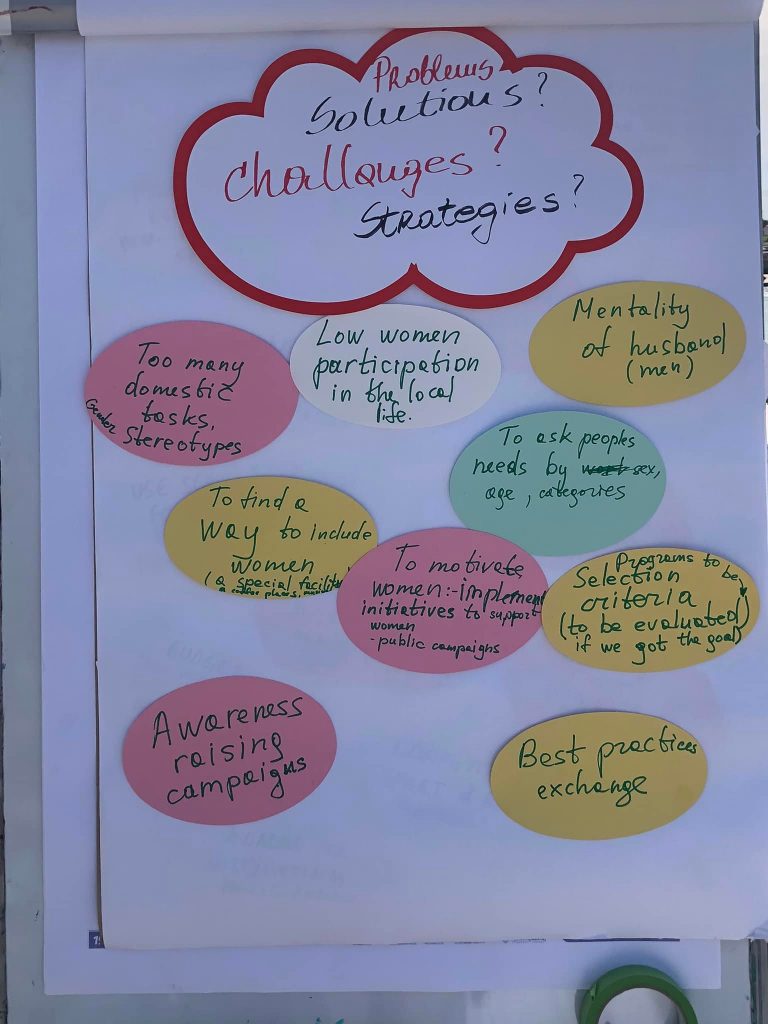 Problems
Solutions?
Challanges?
Strategies?
Too many
domestic
tasks,
Gender Stereotypes
Low women
participation
in the local
life.
Mentality
of husband
(men)
To ask peoples
needs by sex,
age, categories
To find a
way to include
women
(a special facility
To motivate
women:-implement
initiatives to support
women
-public campaigns
Programs to be
Selection
criteria
(to be evaluated)
if we got the goal)
Awareness
raising
campaigns
Best practices
exchange